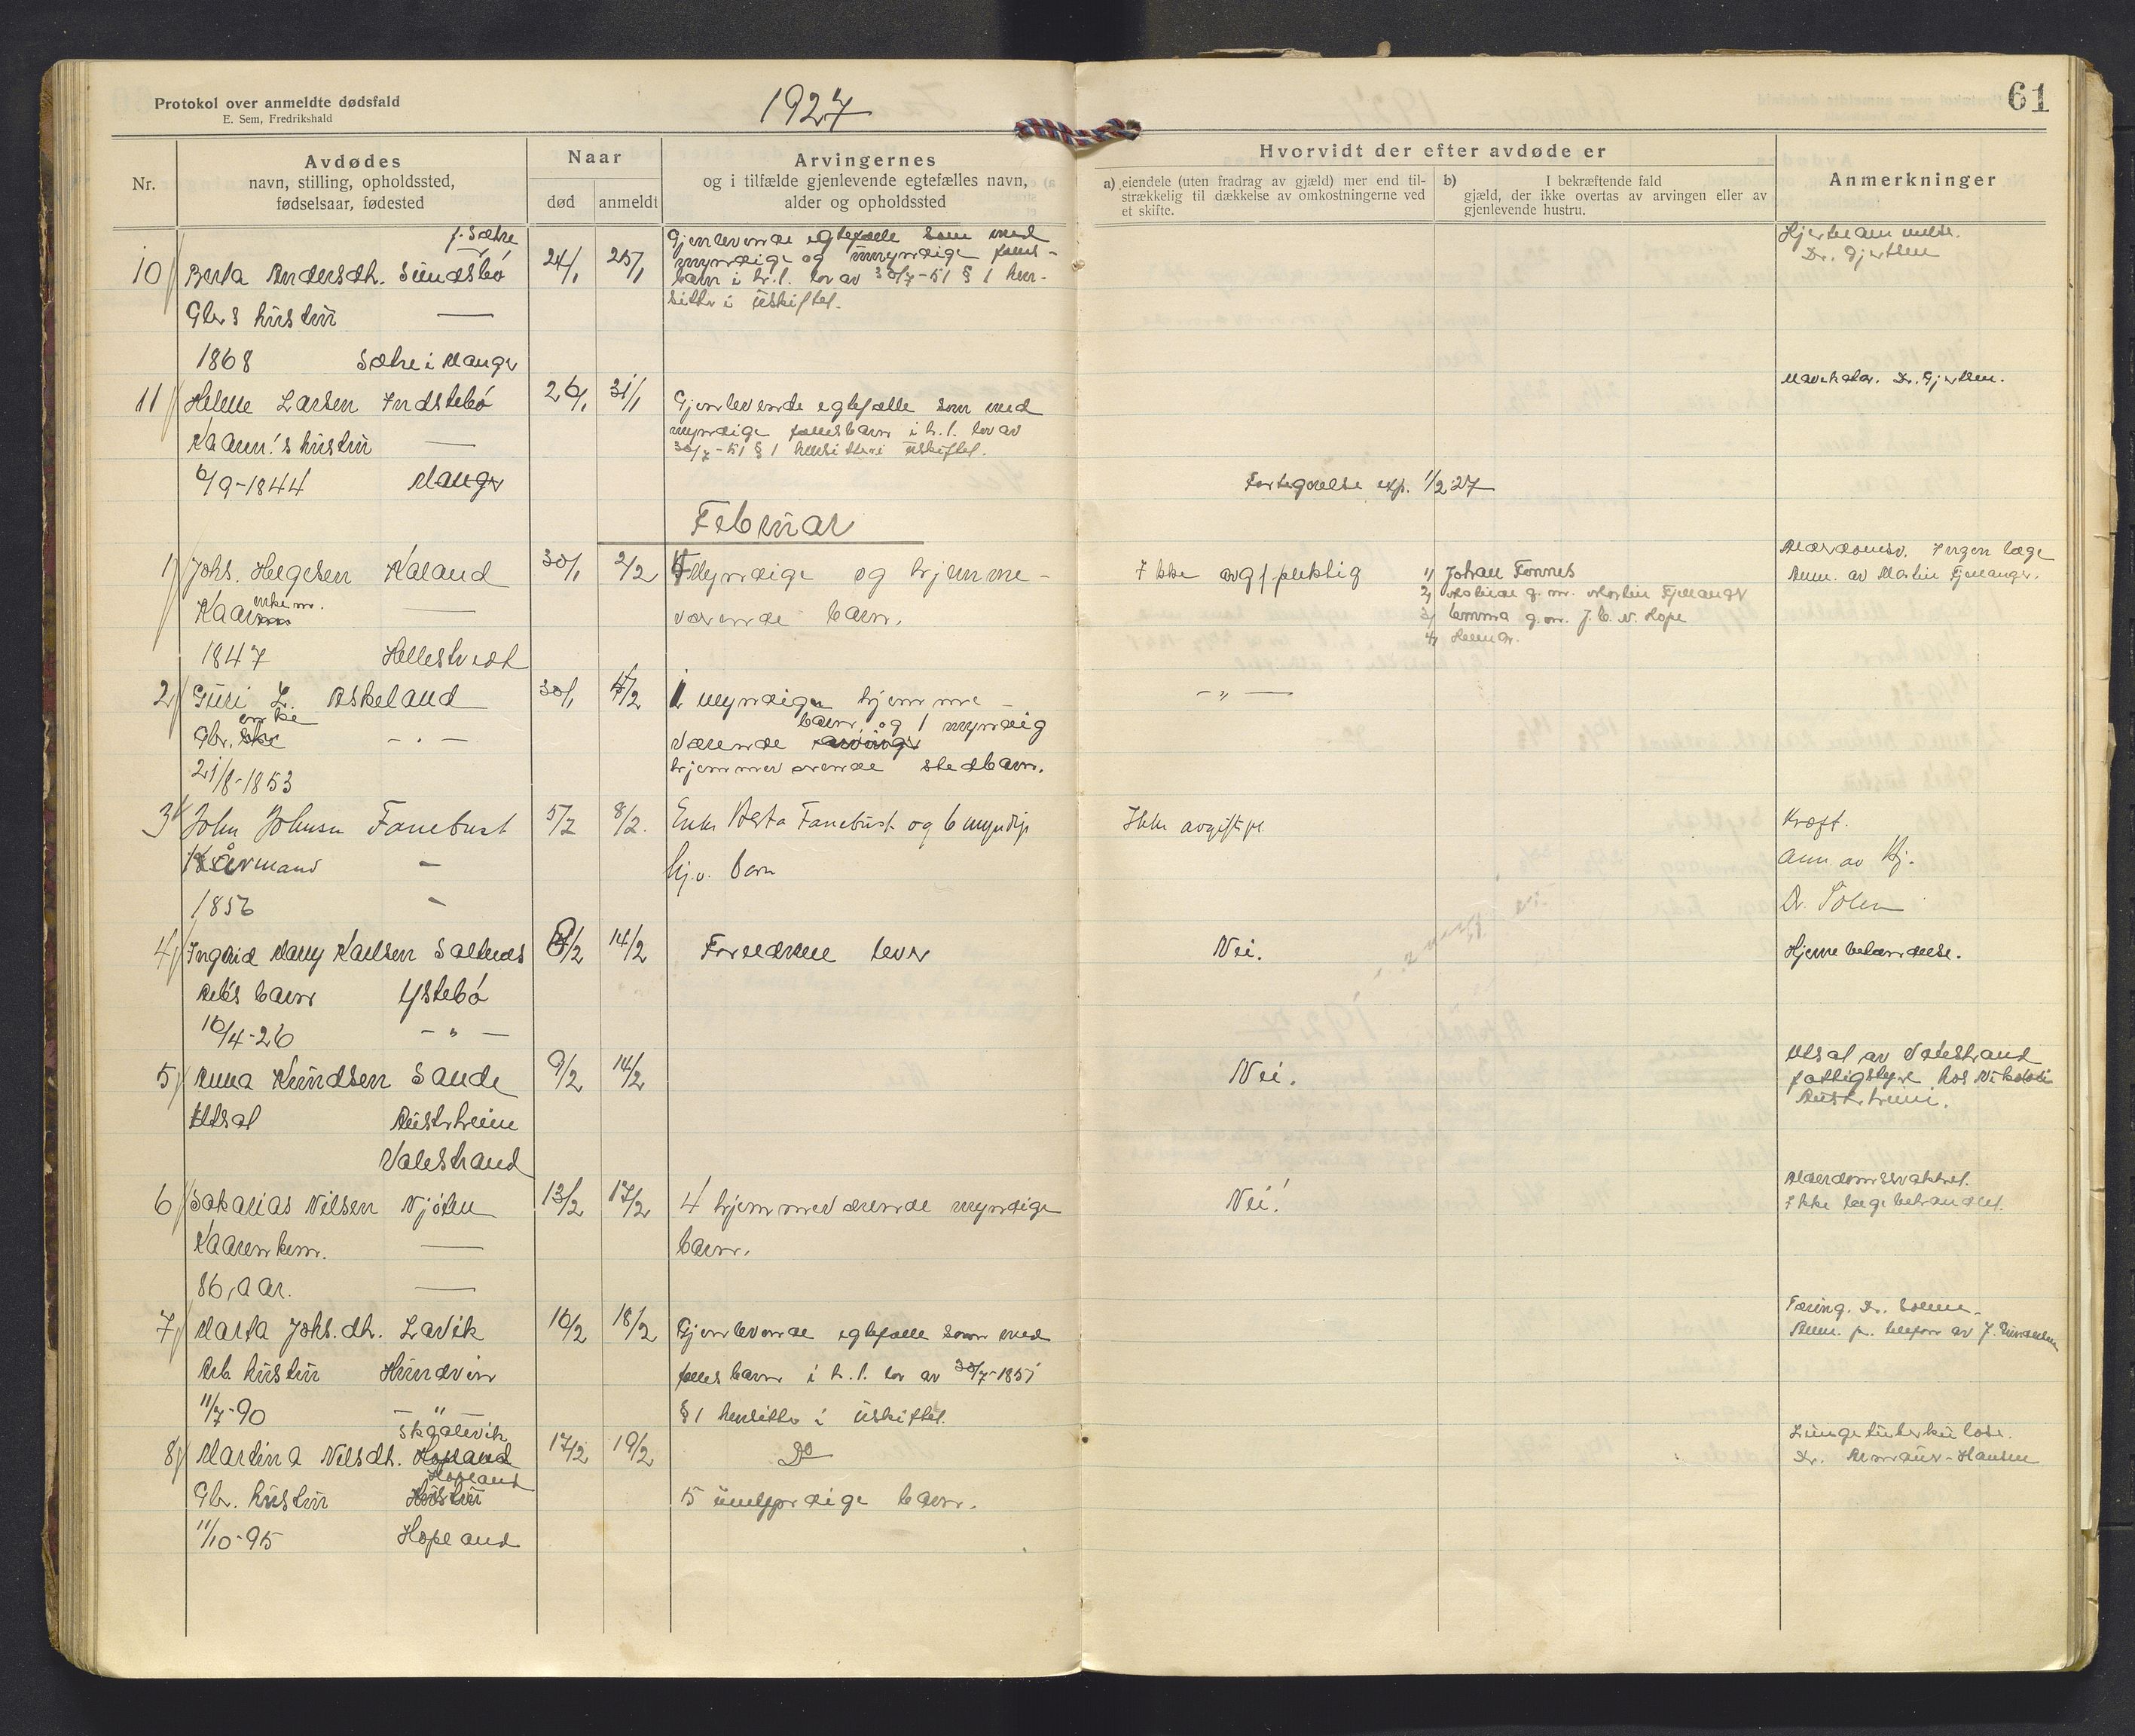 Protokol over anmeldte dødsfald
E. Sem, Fredrikshald
1927
61
Nr.
Avdødes
navn, stilling, opholdssted,
fødselsaar, fødested
Naar
død
anmeldt
Arvingernes
og i tilfælde gjenlevende egtefælles navn,
alder og opholdssted
Hvorvidt der efter avdøde er
a) eiendele (uten fradrag av gjæld) mer end til-
strækkelig til dækkelse av omkostningerne ved
et skifte.
b) I bekræftende fald
gjæld, der ikke overtas av arvingen eller av
gjenlevende hustru.
Anmerkninger
f. Sætre
10 Berta Andersdh. Sundsbö
24/1 25/1
Gbr s hustru
1868 Sætre i Manger
Gjenlevende egtefælle som med
myndige og umyndige fælles-
barn i h.t. lov av 30/7-51 § 1 hen-
sitter i uskiftet.
Dr. Gjertsen
11 Helene Larsen Indstebö
26/1 31/1
Kaarm.'s hustru
6/9-1844 Manger
Gjenlevende egtefælle som med
myndige fællesbarn i h.t. lov av
30/7-51 § 1 hensitter i uskiftet.
Fortegnelse exp. 1/2 27
Dr. Gjertsen.
Februar
1 Johs. Helgesen Kaland
30/1 2/2
Kaar enkem.
1847 Hellestvedt
4 Myndige og hjemme-
værende barn.
Ikke avg.spliktig
1, Johan Fonnes
2, g. m. Martin Fjellanger
3, Emma g. m. J. C. N. Hope
4, Helmer.
Alderdomssv. Ingen læge
Anm. av Martin Fjellanger.
2 Guri L. Askeland
30/1 4/2
Gbr. enke - . -
21/8-1853
1 myndige hjemme-
værende barn og 1 myndig
hjemmeværende stedbarn.
- " -
3 John Johnsen Fanebust
5/2 8/2.
Kårmand -
1856 -
Enke Berta Fanebust og 6 myndige
hj.v. barn
Ikke avgiftspl.
Kræft.
Anm. av Hj.
Dr.
4 Ingrid Mary Karlsen Saltnes
8/2 14/2
Arb's barn Ystebö
16/4-26 - " -
Forældrene lever
Nei.
Hjernebetændelse.
5 Anna Knudsen Sande
9/2 14/2
Utsat Austrheim
Valestrand
Nei.
Utsat av Valestrand
fattigstyre hos Nikolai
Austrheim.
6 Sakarias Nilsen Njöten
13/2 17/2
Kaarenkem.
86, aar.
4 hjemmeværende myndige
barn.
Nei!
Alderdomssvakhet.
Ikke lægebehandlet.
7 Marta Johs.dh. Lavik
16/2 18/2
Arb. hustru Hundvin
11/7-90 - " -
Gjenlevende egtefælle som med
fælles barn i h.t. lov av 30/7-1851
§ 1 hensitter i uskiftet.
Tæring. Dr. Solem.
Anm. p. telefon av J.
8 Martina Nilsdh. Skjatevik
17/2 19/2
Gbr. hustru Hopland
11/10-95 Hopland
Do
5 umyndige barn.
Lungetuberkulose.
Dr. -Hansen